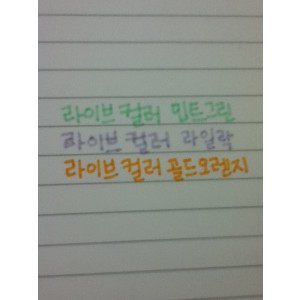 라이브 컬러 민트그린
라이브 컬러 라일락
라이브 컬러 골드오렌지